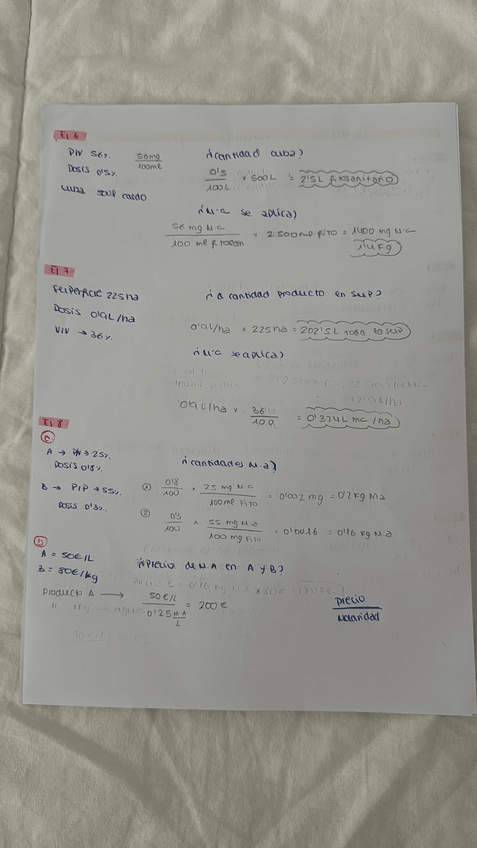 Ej 6
P/V 56%. 56mg / 100ml
¿cantidad cuba?
Dosis 0'5%.
0'5 / 100L × 500L = 2'5L fitosanitario
cuba 500L caldo
¿M.a se aplica?
/ 100 ml fitosan × 2500ml fito = 1400 mg
1'4 Kg
Ej 7
Superficie 225ha
¿a cantidad producto en sup?
Dosis 0'9L/ha
0'9L/ha × 225ha = 202'5L toda la sup
V/V → 36%.
¿M.a se aplica?
0'9L/ha × 36 / 100 = 0'324L ma/ha
Ej 8
a
A → 25%.
Dosis 0'8%.
¿cantidades M.a?
B → P/P → 55%.
Dosis 0'3%.
① 0'8 / 100 × 25 mg / 100ml Fito = 0'002 mg = 0'2 Kg M.a
② 0'3 / 100 × 55 mg M.a / 100 mg Fito = 0'0016 = 0'16 Kg M.a
b
A = 50€/L
B = 80€/kg
¿Precio de M.A en A y B?
Producto A → 50€/L / 0'25 M.A / L = 200€
Precio / Molaridad